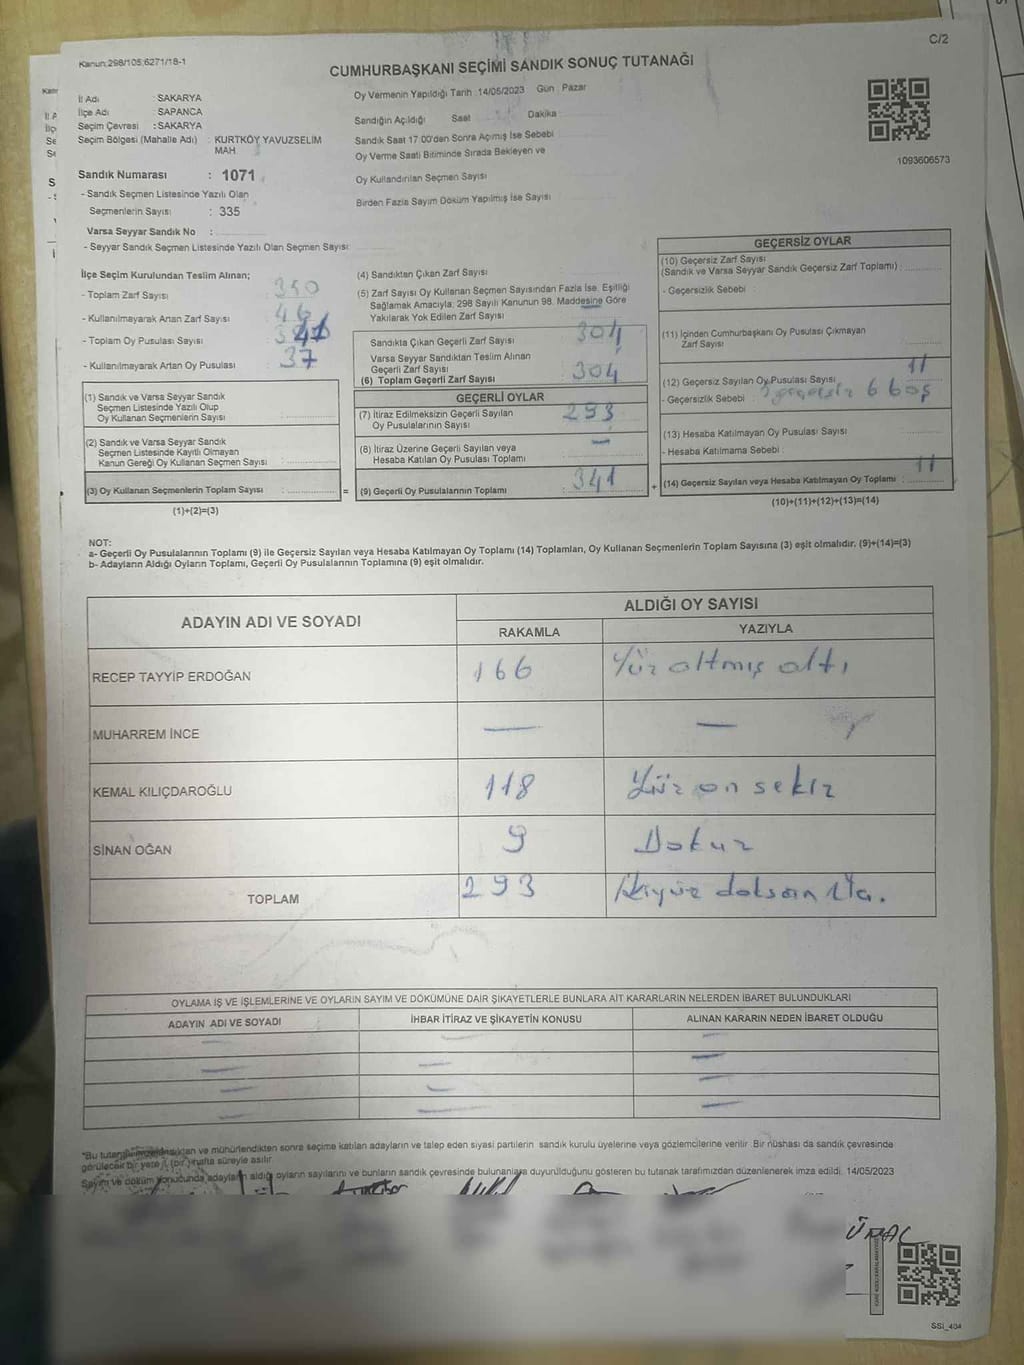 C/2
Kanun:298/105;6271/18-1
CUMHURBAŞKANI SEÇİMİ SANDIK SONUÇ TUTANAĞI
İl Adı : SAKARYA
İlçe Adı : SAPANCA
Seçim Çevresi : SAKARYA
Seçim Bölgesi (Mahalle Adı) : KURTKÖY YAVUZSELİM
MAH
Sandık Numarası : 1071
- Sandık Seçmen Listesinde Yazılı Olan
Seçmenlerin Sayısı : 335
Varsa Seyyar Sandık No :
- Seyyar Sandık Seçmen Listesinde Yazılı Olan Seçmen Sayısı:
Oy Vermenin Yapıldığı Tarih :14/05/2023 Gün Pazar
Sandığın Açıldığı Saat Dakika
Sandık Saat 17.00'den Sonra Açılmış İse Sebebi
Oy Verme Saati Bitiminde Sırada Bekleyen ve
Oy Kullandırılan Seçmen Sayısı
Birden Fazla Sayım Döküm Yapılmış İse Sayısı
1093606573
İlçe Seçim Kurulundan Teslim Alınan;
- Toplam Zarf Sayısı : 350
- Kullanılmayarak Artan Zarf Sayısı : 46
- Toplam Oy Pusulası Sayısı : 341
- Kullanılmayarak Artan Oy Pusulası : 37
(1) Sandık ve Varsa Seyyar Sandık
Seçmen Listesinde Yazılı Olup
Oy Kullanan Seçmenlerin Sayısı :
(2) Sandık ve Varsa Seyyar Sandık
Seçmen Listesinde Kayıtlı Olmayan
Kanun Gereği Oy Kullanan Seçmen Sayısı :
(3) Oy Kullanan Seçmenlerin Toplam Sayısı : =
(1)+(2)=(3)
(4) Sandıktan Çıkan Zarf Sayısı
(5) Zarf Sayısı Oy Kullanan Seçmen Sayısından Fazla İse, Eşitliği
Sağlamak Amacıyla, 298 Sayılı Kanunun 98. Maddesine Göre
Yakılarak Yok Edilen Zarf Sayısı :
Sandıkta Çıkan Geçerli Zarf Sayısı : 304
Varsa Seyyar Sandıktan Teslim Alınan
Geçerli Zarf Sayısı :
(6) Toplam Geçerli Zarf Sayısı : 304
GEÇERLİ OYLAR
(7) İtiraz Edilmeksizin Geçerli Sayılan 293
Oy Pusulalarının Sayısı :
(8) İtiraz Üzerine Geçerli Sayılan veya —
Hesaba Katılan Oy Pusulası Toplamı :
(9) Geçerli Oy Pusulalarının Toplamı : 341 +
GEÇERSİZ OYLAR
(10) Geçersiz Zarf Sayısı
(Sandık ve Varsa Seyyar Sandık Geçersiz Zarf Toplamı) :
- Geçersizlik Sebebi :
(11) İçinden Cumhurbaşkanı Oy Pusulası Çıkmayan
Zarf Sayısı :
(12) Geçersiz Sayılan Oy Pusulası Sayısı 11
- Geçersizlik Sebebi : 5 geçersiz 6 boş
(13) Hesaba Katılmayan Oy Pusulası Sayısı
- Hesaba Katılmama Sebebi :
(14) Geçersiz Sayılan veya Hesaba Katılmayan Oy Toplamı : 11
(10)+(11)+(12)+(13)=(14)
NOT:
a- Geçerli Oy Pusulalarının Toplamı (9) ile Geçersiz Sayılan veya Hesaba Katılmayan Oy Toplamı (14) Toplamları, Oy Kullanan Seçmenlerin Toplam Sayısına (3) eşit olmalıdır. (9)+(14)=(3)
b- Adayların Aldığı Oyların Toplamı, Geçerli Oy Pusulalarının Toplamına (9) eşit olmalıdır.
ADAYIN ADI VE SOYADI ALDIĞI OY SAYISI
RAKAMLA YAZIYLA
RECEP TAYYİP ERDOĞAN 166 Yüz altmış altı
MUHARREM İNCE — —
KEMAL KILIÇDAROĞLU 118 Yüz on sekiz
SİNAN OĞAN 9 Dokuz
TOPLAM 293 İkiyüz doksan üç.
OYLAMA İŞ VE İŞLEMLERİNE VE OYLARIN SAYIM VE DÖKÜMÜNE DAİR ŞİKAYETLERLE BUNLARA AİT KARARLARIN NELERDEN İBARET BULUNDUKLARI
ADAYIN ADI VE SOYADI İHBAR İTİRAZ VE ŞİKAYETİN KONUSU ALINAN KARARIN NEDEN İBARET OLDUĞU
— — —
— — —
— — —
— — —
*Bu ve mühürlendikten sonra seçime katılan adayların ve talep eden siyasi partilerin sandık kurulu üyelerine veya gözlemcilerine verilir. Bir nüshası da sandık çevresinde
görülecek bir yere 1 (bir) hafta süreyle asılır.
Sayım ve döküm sonucunda adayların aldığı oyların sayılarını ve bunların sandık çevresinde bulunanlara duyurulduğunu gösteren bu tutanak tarafımızdan düzenlenerek imza edildi. 14/05/2023
SSİ_404